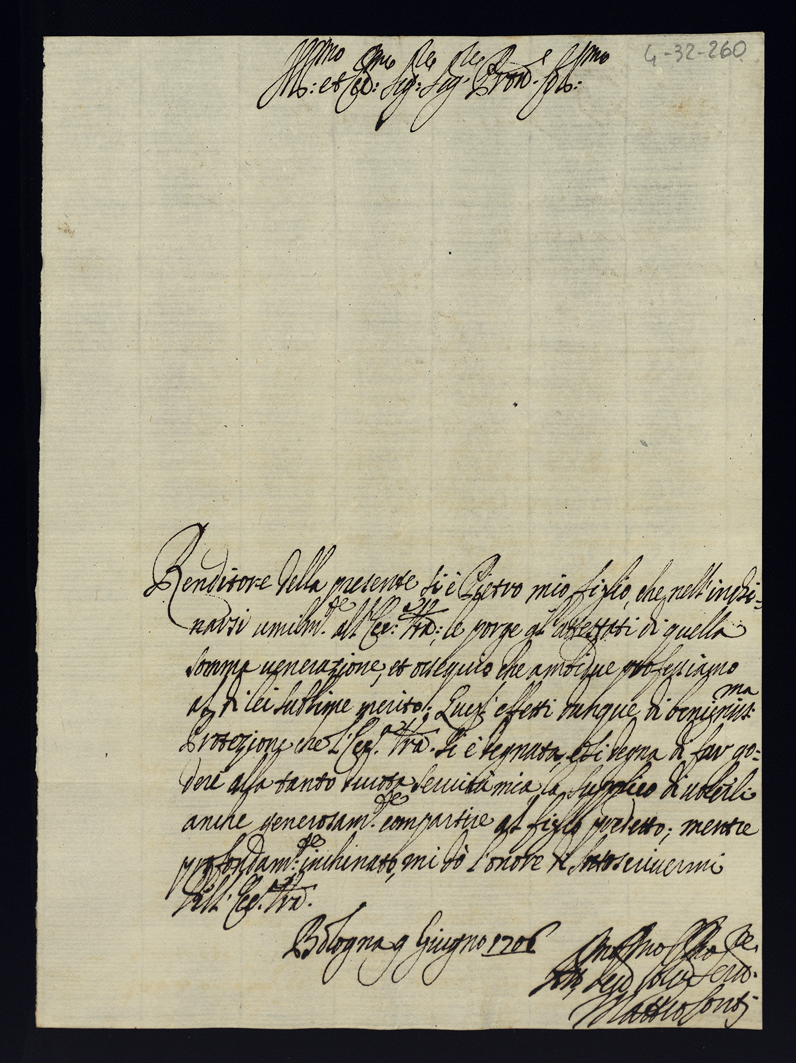 4-32-260
Ill:mo et Ecc:mo Sig:re Sig:re Pron:e Col:mo
Renditore della presente si è Pietro mio figlio, che nell'inchi=
narsi umilm:te all'Ecc:a Vra: le porge gl'attestati di quella
somma venerazione, et ossequio che ambidue professiamo
al di lei sublime merito: Quegl'effetti dunque di benignis:ma
Protezione che l'Ecc:a Vra: si è degnata, e si degna di far go=
dere alla tanto divota servitù mia la supplico di volerli
anche generosam:te compartire al figlio predetto; mentre
profondam:te inchinato, mi dò l'onore di sottoscrivermi
Dell'Ecc:a Vra:
Bologna 9 Giugno 1706
Matteo Conti